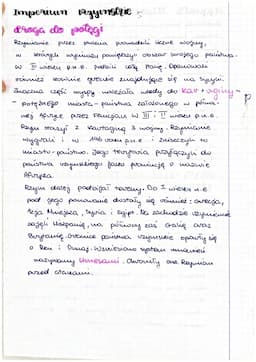 Imperium Rzymskie -
droga do potęgi
Rzymianie przez prowadzili liczne wojny,
w których wyniku powiększyli obszar swojego państwa.
w II wieku p.n.e. podbili całą Italię. Opanowali
również greckie znajdujące się na Sycylii.
Znaczna część wyspy należała wtedy do Kartaginy -
- potężnego miasta - państwa założonego w półno-
nej Afryce przez Fenicjan w i wieku p.n.e.
Rzym stoczył z Kartaginą 3 wojny. Rzymianie
wygrali i w 146 roku p.n.e. zniszczyli to
miasto - państwo. Jego terytoria przyłączyli do
państwa rzymskiego jako prowincję o nazwie
Afryka
Rzym dalej podbijał tereny. Do I wieku n.e
pod jego panowanie dostały się również: Grecja,
Azja Mniejsza, Syria i Egipt. Na zachodzie Rzymianie
zajęli Hiszpanię, na północy zaś Galię oraz
Brytanię. Granice państwa rzymskie oparły się
o Ren i Dunaj. Wzniesiono system umocnień
nazywany limesami. Chroniły one Rzymian
przed atakami.